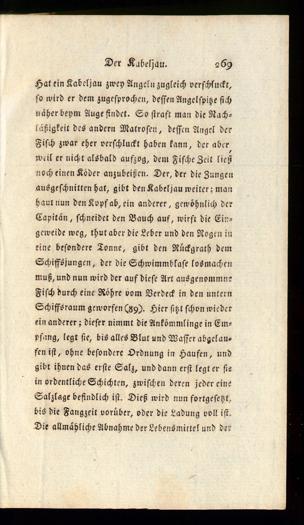 Der Kabeljau. 269
Hat ein Kabeljau zwey Angeln zugleich verschluckt,
so wird er dem zugesprochen, dessen Angelspitze sich
näher beym Auge findet. So straft man die Nach-
läßigkeit des andern Matrosen, dessen Angel der
Fisch zwar eher verschluckt haben kann, der aber
weil er nicht alsbald aufzog, dem Fische Zeit ließ
noch einen Köder anzubeißen. Der, der die Zungen
ausgeschnitten hat, gibt den Kabeljau weiter; man
haut nun den Kopf ab, ein anderer, gewöhnlich der
Capitän, schneidet den Bauch auf, wirft die Ein-
geweide weg, thut aber die Leber und den Rogen in
eine besondere Tonne, gibt den Rückgrath dem
Schiffsjungen, der die Schwimmblase losmachen
muß, und nun wird der auf diese Art ausgenommne
Fisch durch eine Röhre vom Verdeck in den untern
Schiffsraum geworfen (89). Hier sitzt schon wieder
ein anderer; dieser nimmt die Ankömmlinge in Em-
pfang, legt sie, bis alles Blut und Wasser abgelau-
fen ist, ohne besondere Ordnung in Haufen, und
gibt ihnen das erste Salz, und dann erst legt er sie
in ordentliche Schichten, zwischen deren jeder eine
Salzlage befindlich ist. Dieß wird nun fortgesetzt,
bis die Fangzeit vorüber, oder die Ladung voll ist.
Die allmähliche Abnahme der Lebensmittel und der